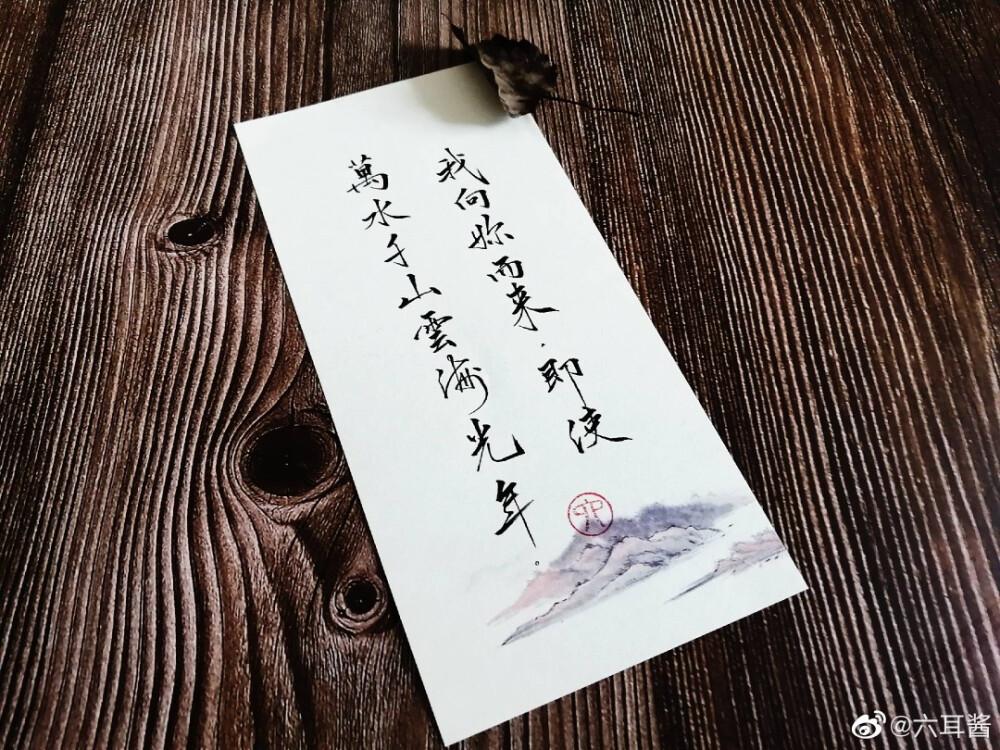 我向妳而来，即使
萬水千山雲海光年。
@六耳酱